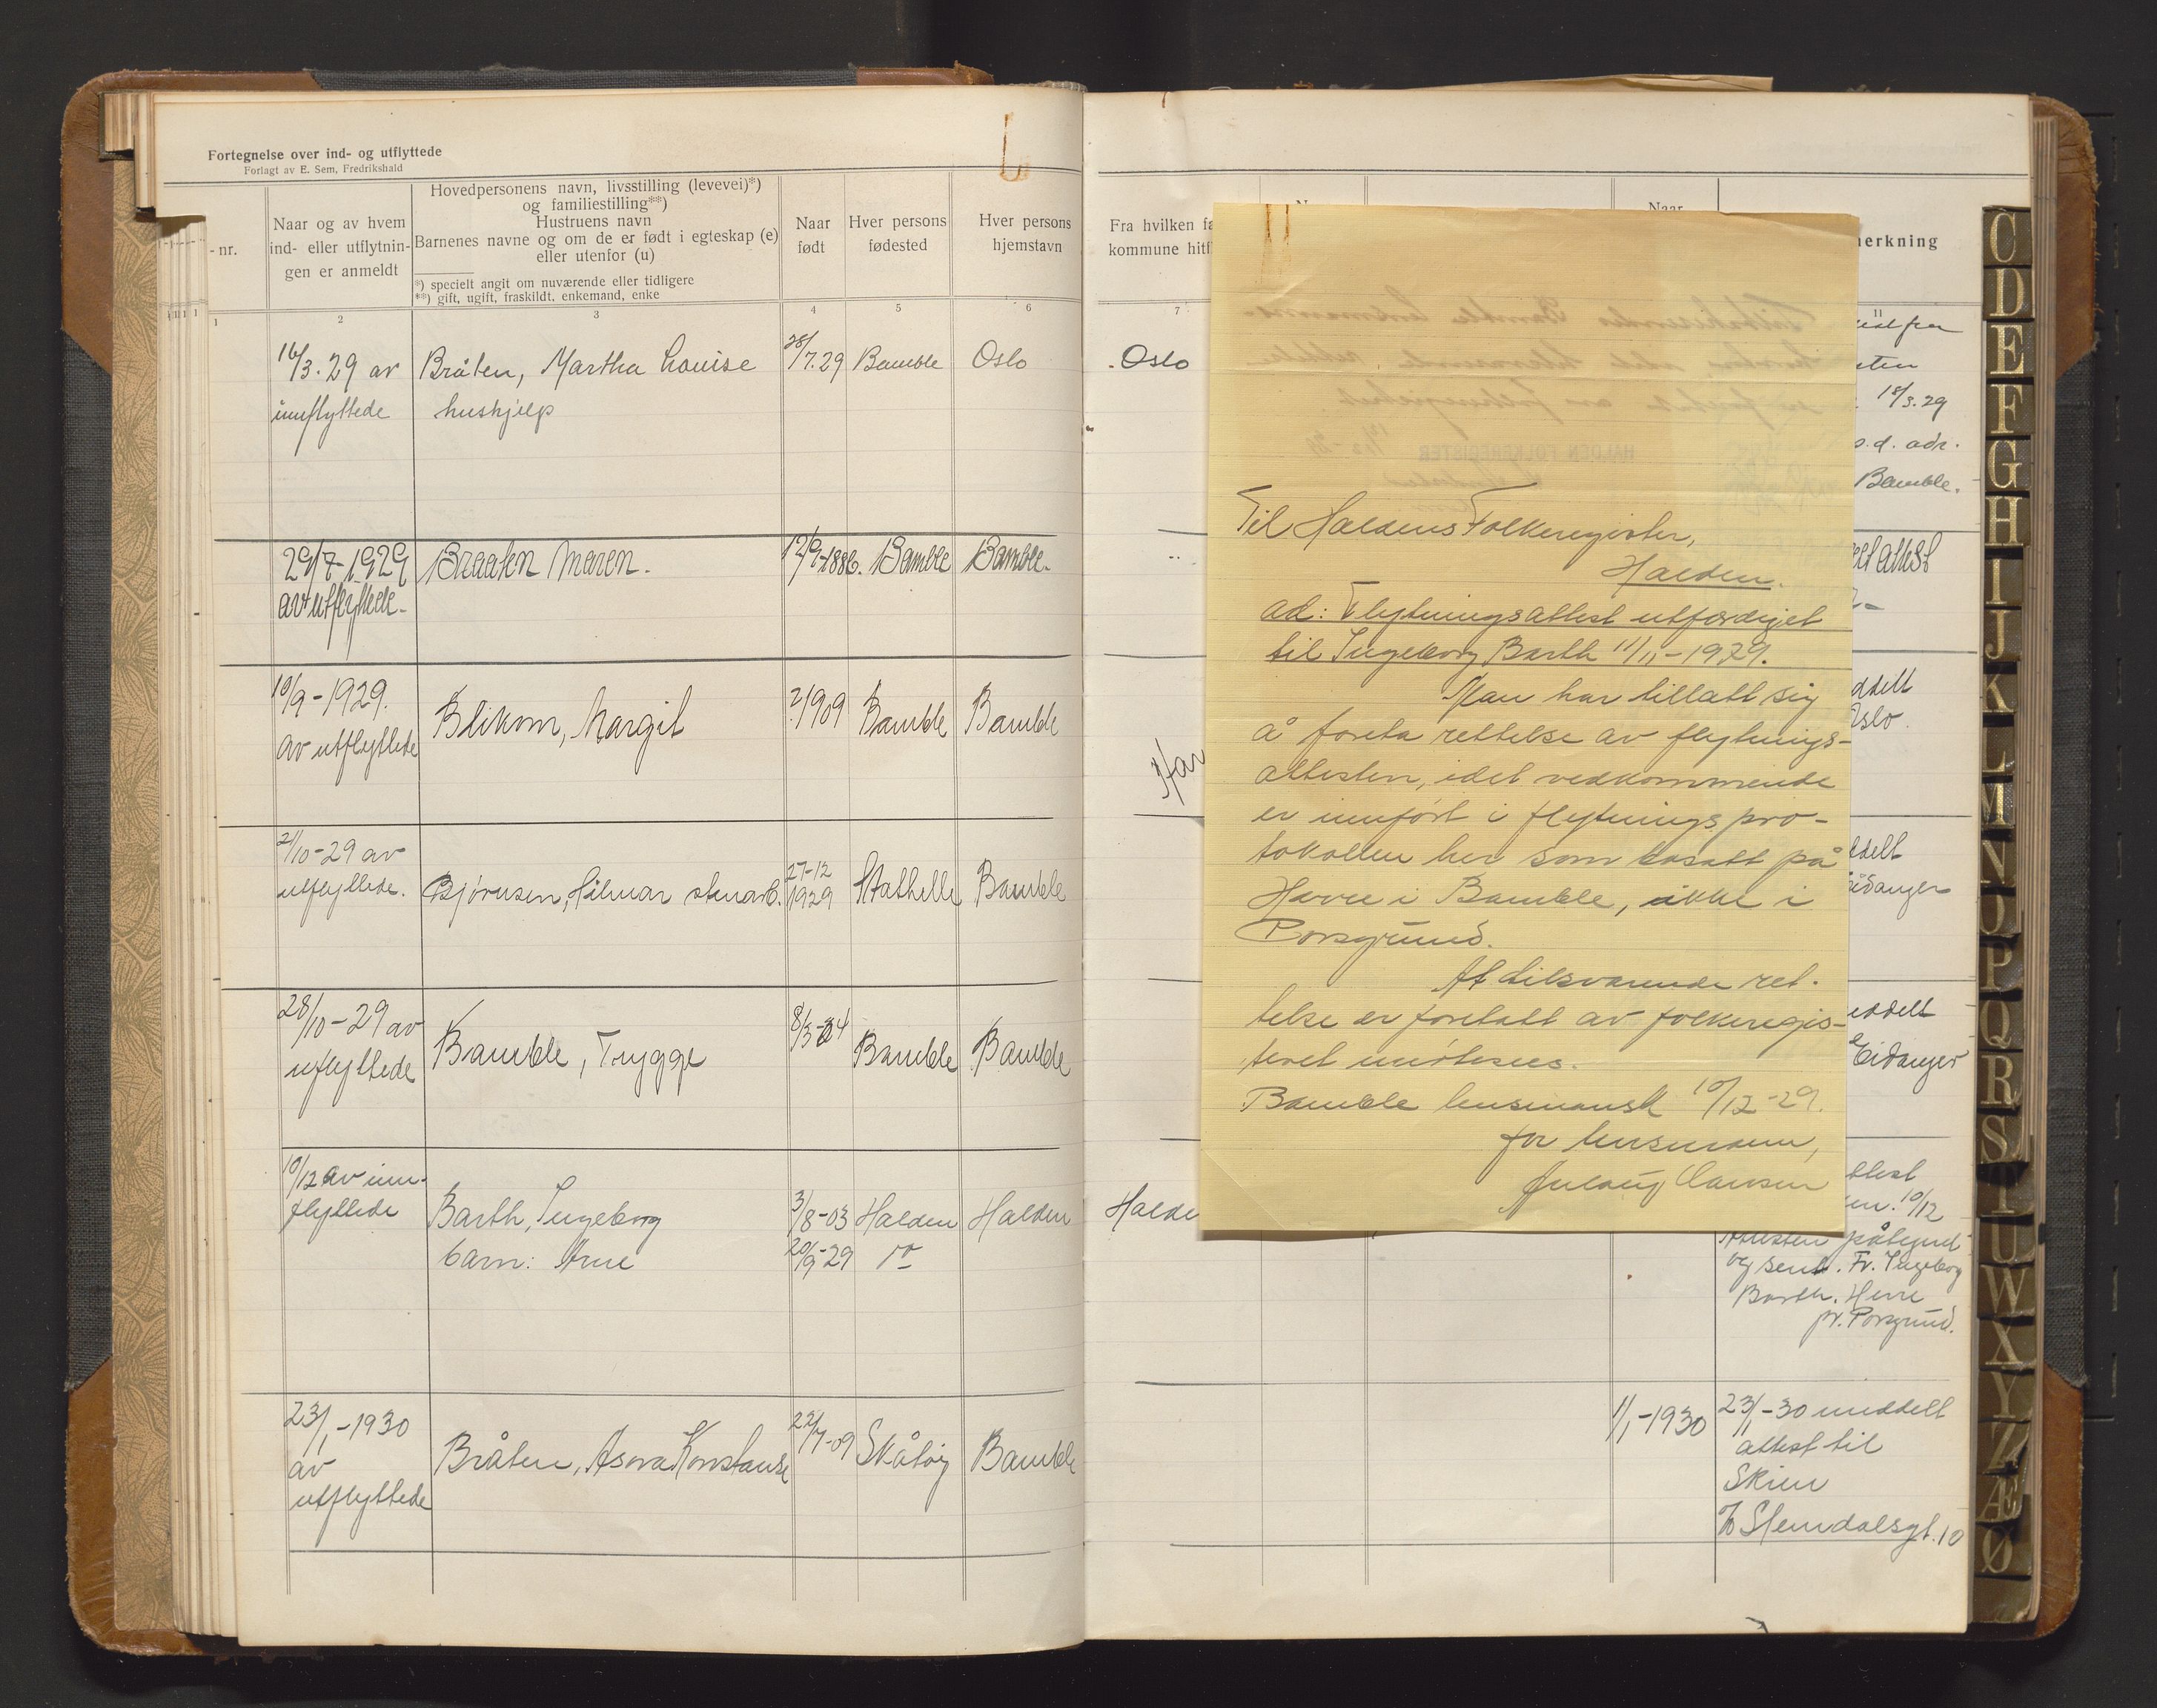 Fortegnelse over ind- og utflyttede
Forlagt av E. Sem, Fredrikshald
- nr.
Naar og av hvem
ind- eller utflytnin-
gen er anmeldt
Hovedpersonens navn, livsstilling (levevei)*)
og familiestilling**)
Hustruens navn
Barnenes navne og om de er født i egteskap (e)
eller utenfor (u)
*) specielt angit om nuværende eller tidligere
**) gift, ugift, fraskildt, enkemand, enke
Naar
født
Hver persons
fødested
Hver persons
hjemstavn
1
2
3
4
5
6
16/3. 29 av
innflyttede
Bråten, Martha Louise
hushjelp
28/7. 29
Bamble
Oslo
29/7-1929
av utflyttede-
Braaten Maren.
12/9-1886.
Bamble
Bamble-
10/9-1929.
av utflyttede
Blikom, Margit
?/1909
Bamble
Bamble
2/10-29 av
utflyttede.
Bjørnsen, Hilmar stenarb.
27-12
1929
Stathelle
Bamble
28/10-29 av
utflyttede
Bamble, Trygge
8/3-04
Bamble
Bamble
10/12 av inn-
flyttede
Barth, Ingeborg
barn: Arne
3/8-03
20/9-29
Halden
Halden
23/1-1930
av
utflyttede
Bråten, Asora Konstanse
22/7-09
Skåtøy
Bamble
Fra hvilken fa
kommune hitfl
Naar
merkning
7
11
Oslo
18/3. 29
s.d. adr.
Bamble.
attest
Har
ddelt
Oslo.
ddelt
Eidanger
eddelt
Eidanger
Halde
attest
en. 10/12
Attesten påtegnet
og sendt. Fr. Ingeborg
Barth. Herre
pr. Porsgrund.
1/1-1930
23/1-30 meddelt
attest til
Skien
Stendalsgt. 10
Til Haldens Folkeregister,
Halden.
ad: Flytningsattest utferdiget
til Ingeborg Barth 11/11-1929.
Man har tillatt sig
å foreta rettelse av flytnings-
attesten, idet vedkommende
er innført i flytningspro-
tokollen her som bosatt på
Herre i Bamble, ikke i
Porsgrund.
At tilsvarende ret-
telse er foretatt av folkeregis-
teret imøtesees.
Bamble lensmannsk 10/12-29.
for lensmann,
HALDEN FOLKEREGISTER
C
D
E
F
G
H
I
J
K
L
M
N
O
P
Q
R
S
T
U
W
X
Y
Z
Æ
Ø